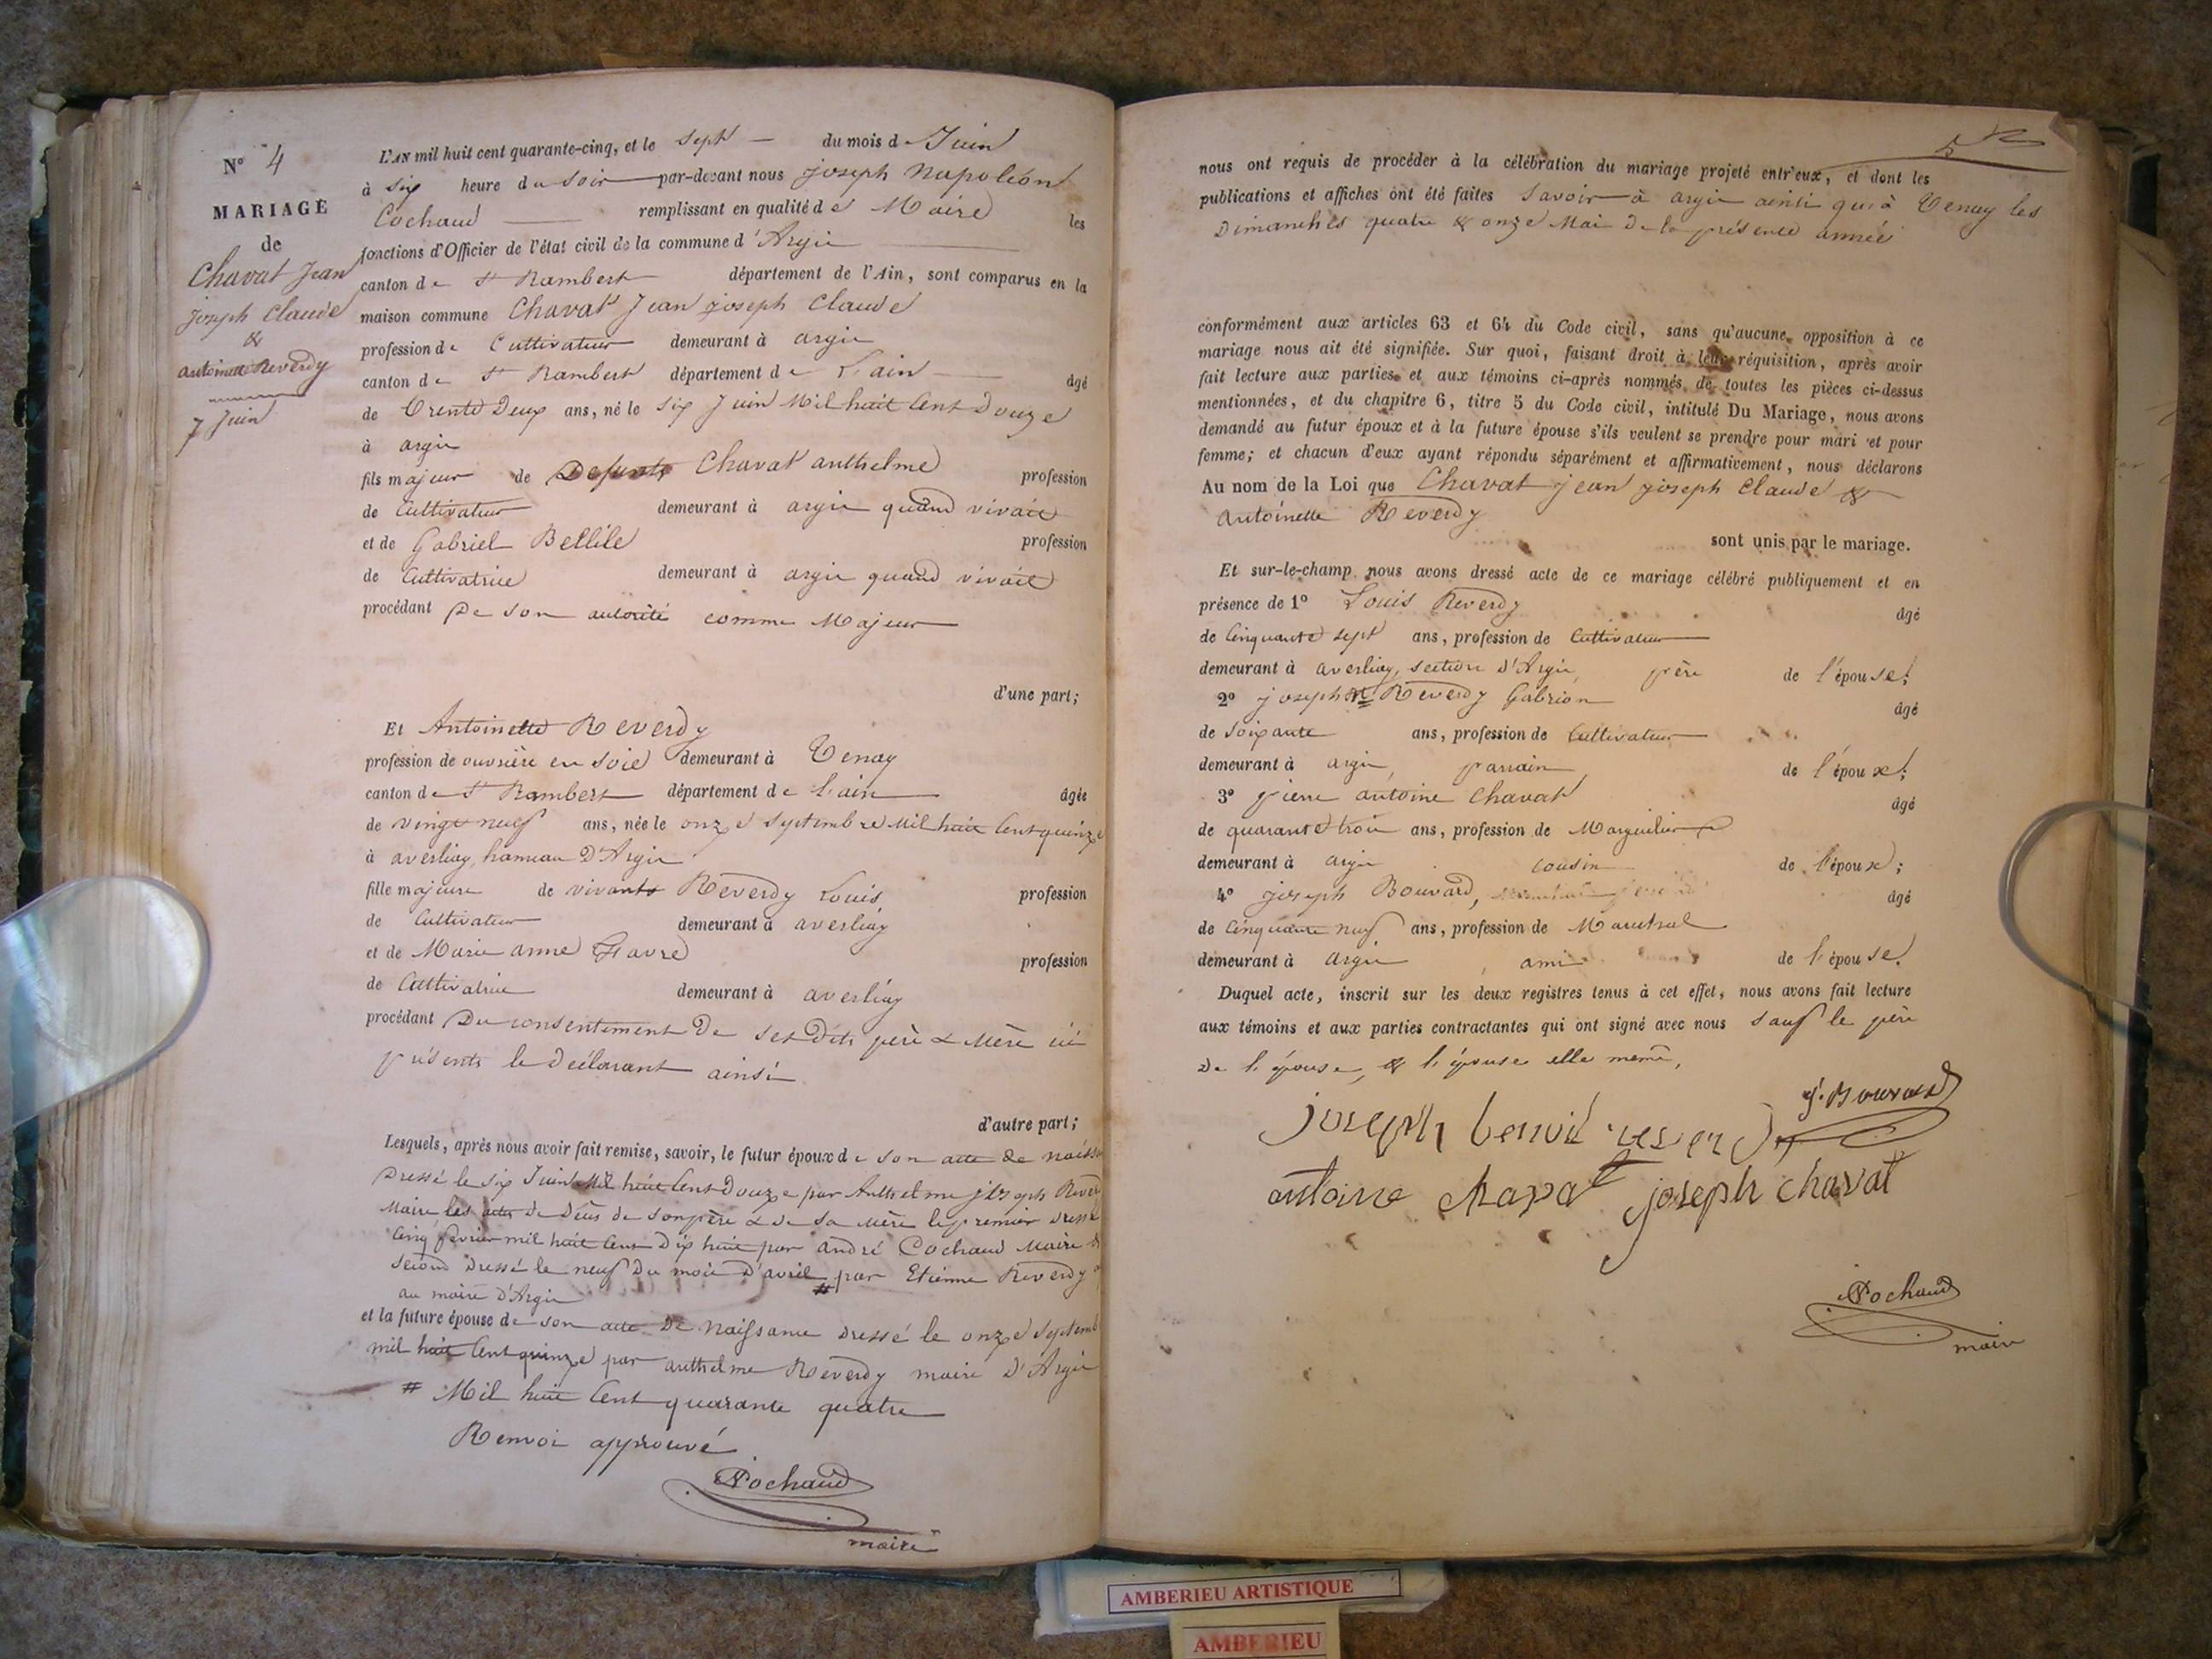 N° 4
MARIAGE
de
Chavat Jean
Joseph Claude
&
antoinette Reverdy
7 Juin
L'AN mil huit cent quarante-cinq, et le sept du mois de Juin
à six heure du soir par-devant nous joseph Napoléon
Cochaud remplissant en qualité de Maire les
fonctions d'Officier de l'état civil de la commune d'Argis
canton de St Rambert département de l'Ain, sont comparus en la
maison commune Chavat Jean joseph Claude
profession de Cultivateur demeurant à argis
canton de St Rambert département de L'ain âgé
de Trente Deux ans, né le six Juin Mil huit Cent Douze
à argis
fils majeur de Defunts Chavat anthelme profession
de Cultivateur demeurant à argis quand vivait
et de Gabriel Bellile profession
de Cultivatrice demeurant à argis quand vivait
procédant De son autorité comme Majeur
d'une part;
Et Antoinette Reverdy
profession de ouvrière en soie demeurant à Tenay
canton de St Rambert département de L'ain âgée
de vingt neuf ans, née le onze septembre Mil huit Cent quinze
à averliaz, hameau D'Argis
fille majeure de vivants Reverdy Louis profession
de Cultivateur demeurant à averliaz
et de Marie anne Favre profession
de Cultivatrice demeurant à averliaz
procédant Du consentement De ses Dits père & Mère ici
présents le Déclarant ainsi
d'autre part;
Lesquels, après nous avoir fait remise, savoir, le futur époux de son acte de naiss
Dressé le six Juin Mil huit Cent Douze par Anthelme joseph Reverdy
Maire les actes de Décès de son père & de sa Mère le premier Dressé
Cinq février mil huit Cent Dix huit par andré Cochaud Maire
second Dressé le neuf Du mois D'avril # par Etienne Reverdy
au maire D'Argis
et la future épouse de son acte De Naissance Dressé le onze Septemb
mil huit Cent quinze par anthelme Reverdy maire D'Argis
# Mil huit Cent quarante quatre
Renvoi approuvé
Cochaud
maire
5
nous ont requis de procéder à la célébration du mariage projeté entr'eux, et dont les
publications et affiches ont été faites Savoir à argis ainsi qu'à Tenay les
Dimanches quatre & onze Mai De la présente année
conformément aux articles 63 et 64 du Code civil, sans qu'aucune opposition à ce
mariage nous ait été signifiée. Sur quoi, faisant droit à leur réquisition, après avoir
fait lecture aux parties et aux témoins ci-après nommés, de toutes les pièces ci-dessus
mentionnées, et du chapitre 6, titre 5 du Code civil, intitulé Du Mariage, nous avons
demandé au futur époux et à la future épouse s'ils veulent se prendre pour mari et pour
femme; et chacun d'eux ayant répondu séparément et affirmativement, nous déclarons
Au nom de la Loi que Chavat jean joseph Claude &
antoinette Reverdy
sont unis par le mariage.
Et sur-le-champ nous avons dressé acte de ce mariage célébré publiquement et en
présence de 1° Louis Reverdy âgé
de Cinquante sept ans, profession de Cultivateur
demeurant à averliaz, section d'Argis, père de l'épouse;
2° joseph Reverdy Gabrion âgé
de Soixante ans, profession de Cultivateur
demeurant à argis, parrain, de l'époux;
3° pierre antoine Chavat âgé
de quarante trois ans, profession de Marguilier
demeurant à argis cousin de l'époux;
4° joseph Bouvard, âgé
de Cinquante neuf ans, profession de Maréchal
demeurant à argis, ami de l'épouse.
Duquel acte, inscrit sur les deux registres tenus à cet effet, nous avons fait lecture
aux témoins et aux parties contractantes qui ont signé avec nous sauf le père
De l'épouse, & l'épouse elle meme,
J. Bouvard
joseph
antoine Chavat joseph chavat
Cochaud
maire
AMBERIEU ARTISTIQUE
AMBERIEU